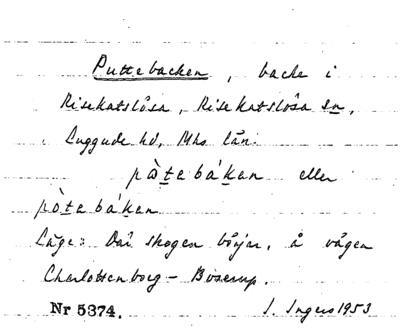 Puttebacken, backe i
Risekatslösa, Risekatslösa sn,
Luggude hd, Mhs län.
pòtebákan eller
pòtebákan
Läge: Där skogen börjar, å vägen
Charlottenborg – Boserup.
Nr 5374. I. Ingers 1953